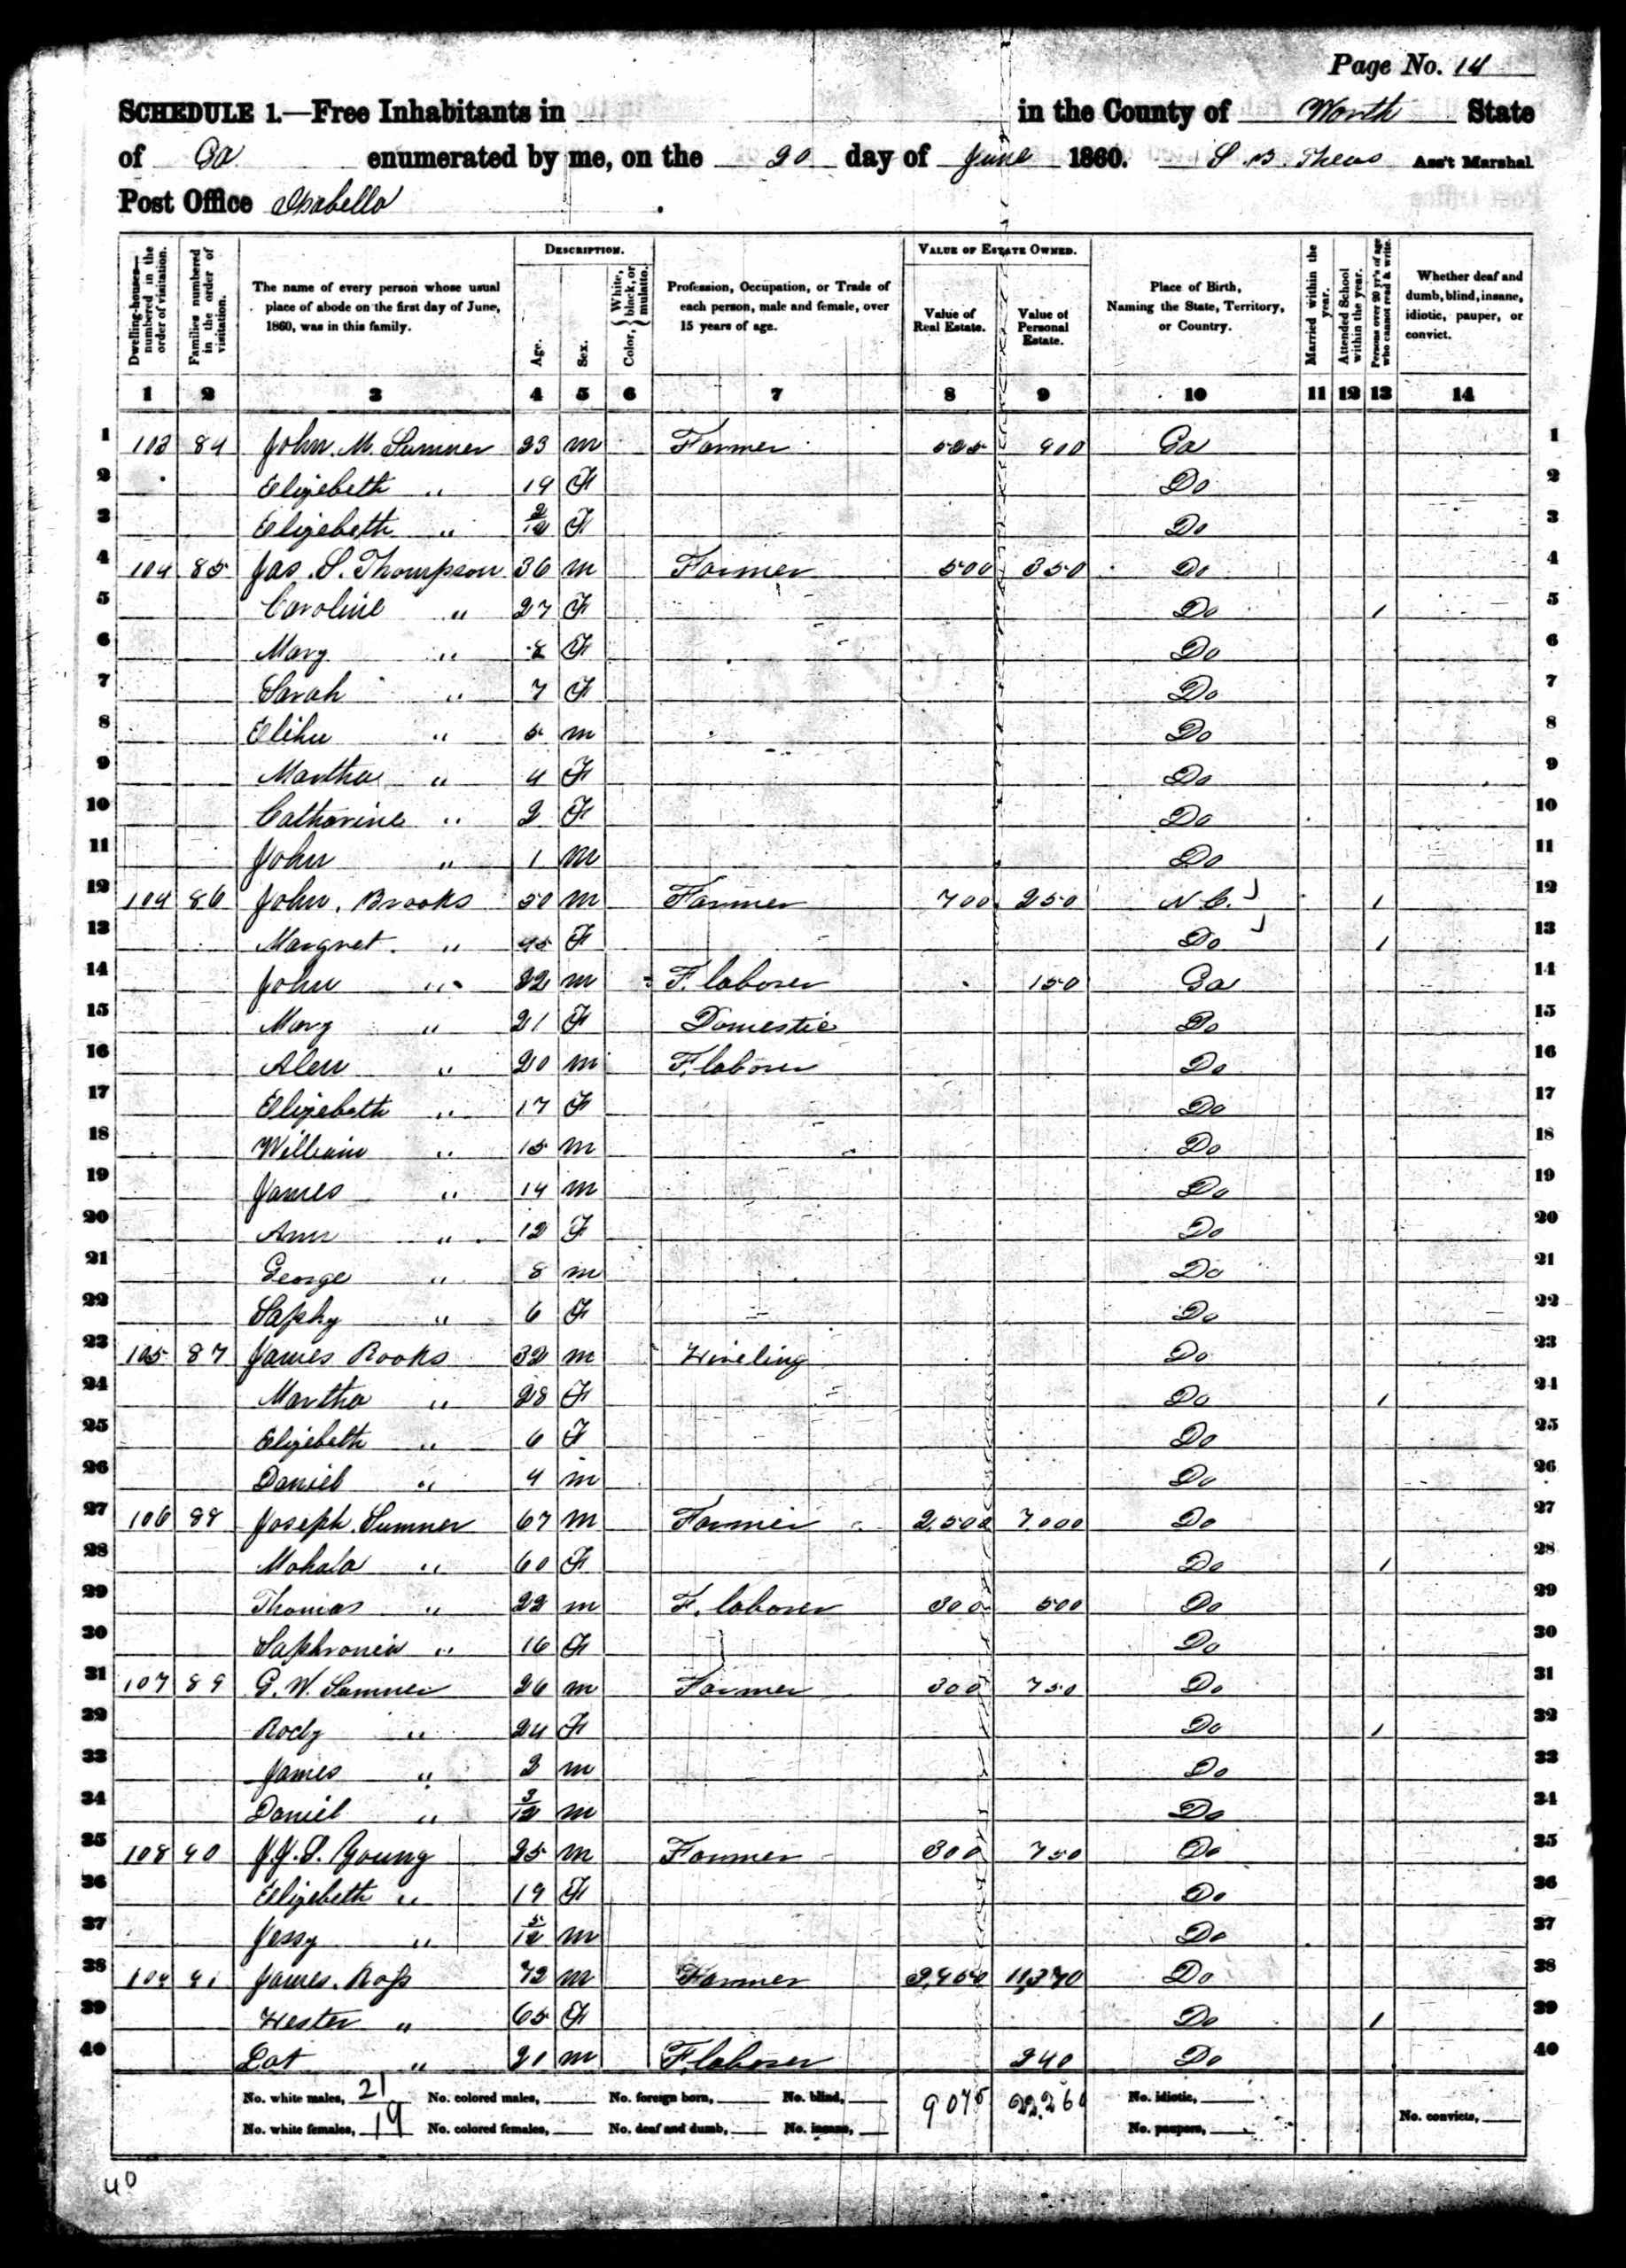 Page No. 14
SCHEDULE 1.—Free Inhabitants in in the County of Worth State
of Ga enumerated by me, on the 20 day of June 1860. S. B. Ass't Marshal
Post Office Isabella
DESCRIPTION. VALUE OF ESTATE OWNED.
Dwelling-houses—numbered in the order of visitation. Families numbered in the order of visitation. The name of every person whose usual place of abode on the first day of June, 1860, was in this family. Age. Sex. Color, White, black, or mulatto. Profession, Occupation, or Trade of each person, male and female, over 15 years of age. Value of Real Estate. Value of Personal Estate. Place of Birth, Naming the State, Territory, or Country. Married within the year. Attended School within the year. Persons over 20 yr's of age who cannot read & write. Whether deaf and dumb, blind, insane, idiotic, pauper, or convict.
1 2 3 4 5 6 7 8 9 10 11 12 13 14
1 84 John. M. Sumner 23 m Farmer 525 900 Ga 1
2 Elizebeth " 19 F Do 2
3 Elizebeth " 2/12 F Do 3
4 104 85 Jas. S. Thompson 36 m Farmer 500 350 Do 4
5 Caroline " 27 F Do / 5
6 Mary " 8 F Do 6
7 Sarah " 7 F Do 7
8 Elihu " 5 m Do 8
9 Martha " 4 F Do 9
10 Catharine " 2 F Do 10
11 John " 1 m Do 11
12 104 86 John. Brooks 50 m Farmer 700 250 N C. / 12
13 Margret. " 45 F Do / 13
14 John " 22 m F. laborer 150 Ga 14
15 Mary " 21 F Domestic Do 15
16 Alen " 20 m F. laborer Do 16
17 Elizebeth " 17 F Do 17
18 William " 15 m Do 18
19 James " 14 m Do 19
20 Ann " 12 F Do 20
21 George " 8 m Do 21
22 Saphy " 6 F Do 22
23 105 87 James Rooks 32 m Hireling Do 23
24 Martha " 28 F Do / 24
25 Elizebeth " 6 F Do 25
26 Daniel " 4 m Do 26
27 106 88 Joseph. Sumner 67 m Farmer 2,500 7,000 Do 27
28 Mahala " 60 F Do / 28
29 Thomas " 22 m F. laborer 300 500 Do 29
30 Saphronia " 16 F Do 30
31 107 89 G. W. Sumner 26 m Farmer 300 750 Do 31
32 Rody " 24 F Do / 32
33 James " m Do 33
34 Daniel " 3/12 m Do 34
35 108 90 J. J. S. Young 25 m Farmer 300 750 Do 35
36 Elizebeth " 19 F Do 36
37 Jessy " 5/12 m Do 37
38 109 91 James. Ross 72 m Farmer 11,370 Do 38
39 Hester " 65 F Do / 39
40 Lot " 21 m F. laborer 240 Do 40
No. white males, 21 No. colored males, No. foreign born, No. blind, 9075 22,260 No. idiotic,
No. white females, 19 No. colored females, No. deaf and dumb, No. insane, No. paupers, No. convicts,
40